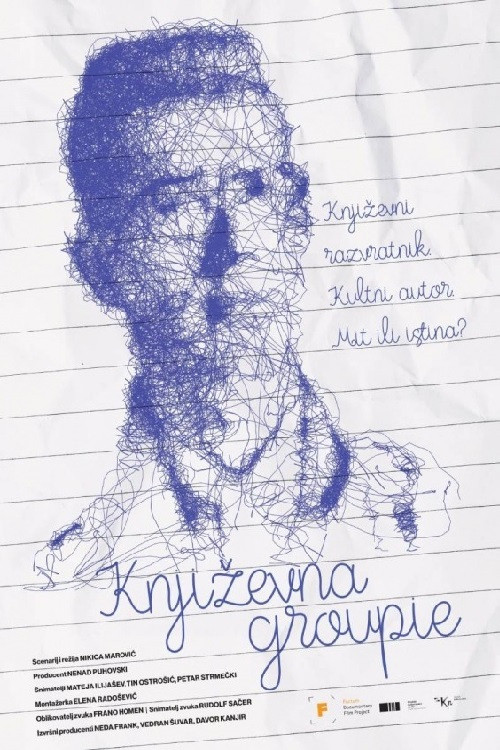 Književni
razvratnik.
Kultni autor.
Mit ili istina?
Književna
groupie
Scenarij i režija NIKICA MAROVIĆ
Producent NENAD PUHOVSKI
Snimatelji MATEJA ILIJAŠEV, TIN OSTROŠIĆ, PETAR STRMEČKI
Montažerka ELENA RADOŠEVIĆ
Oblikovatelj zvuka FRANO HOMEN | Snimatelj zvuka RUDOLF SAČER
Izvršni producenti NEDA FRANK, VEDRAN ŠUVAR, DAVOR KANJIR
F
Factum
Documentary
Film Project
Kr